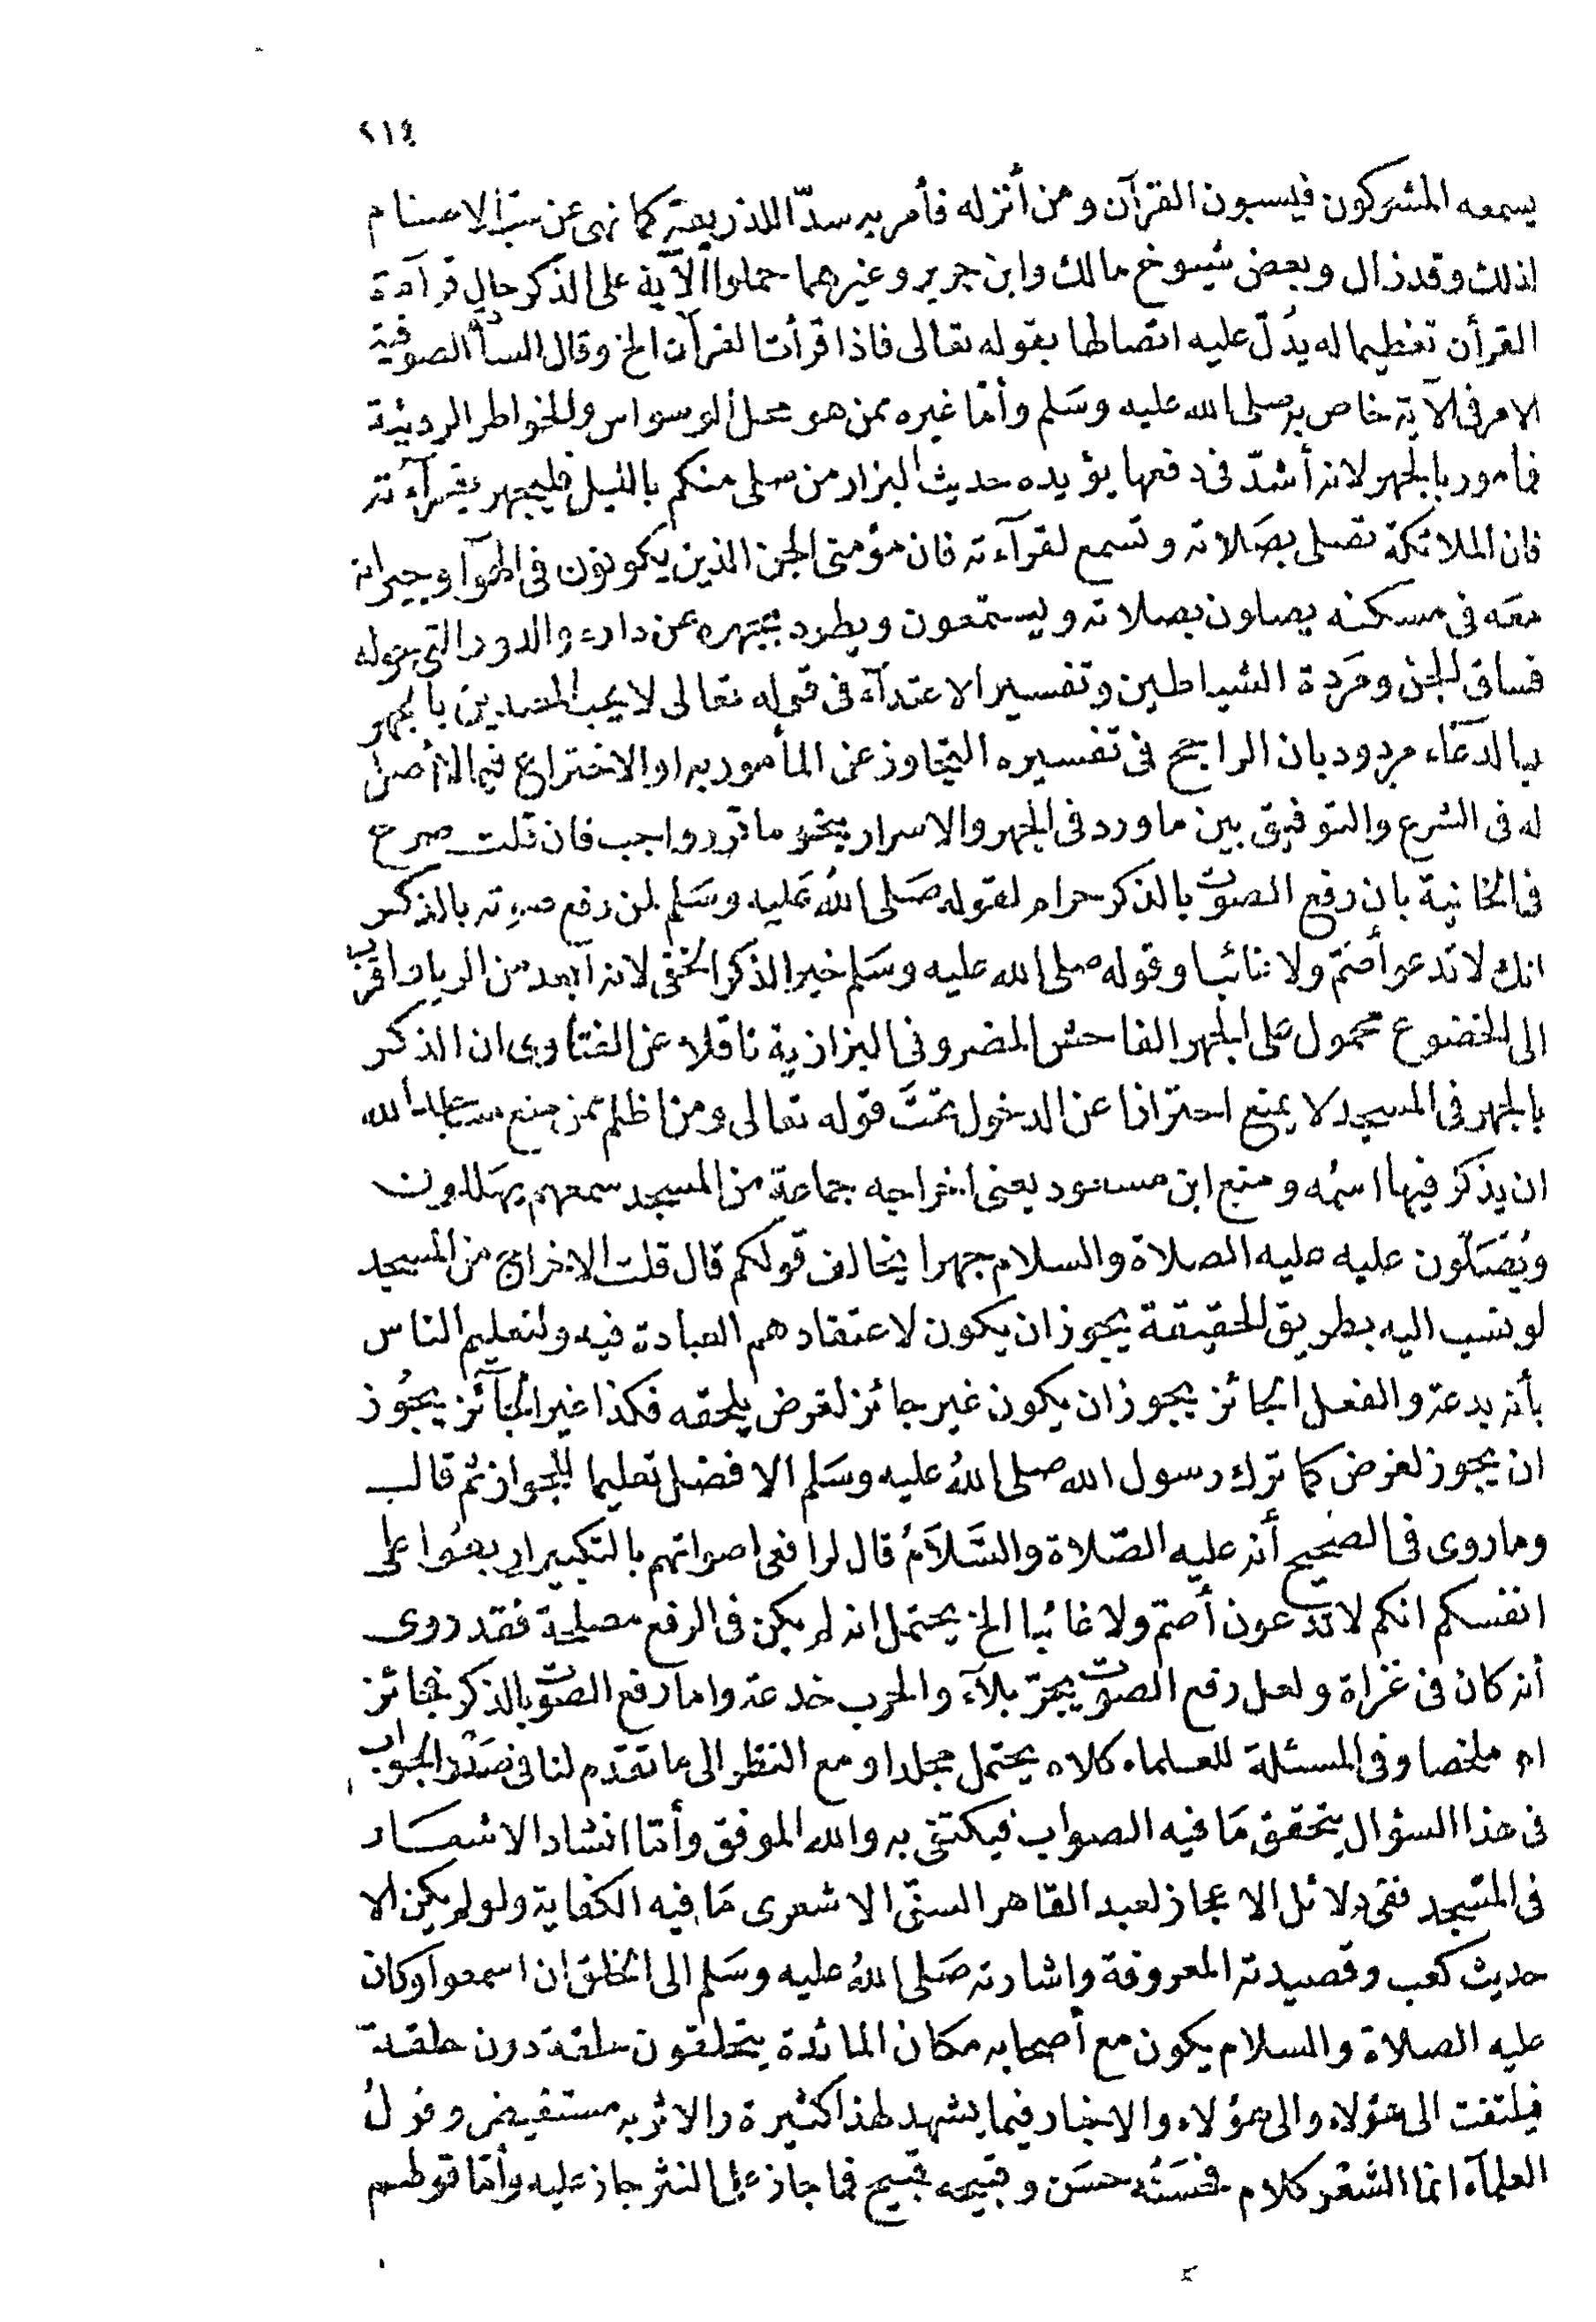 ٢١٤
يسمعه المشركون فيسبون القرآن ومن أنزله فأمر به سدّا للذريعة كما نهى عن سبّ الاصنام
لذلك وقد زال وبعض شيوخ مالك وابن جرير وغيرهما حملوا الآية على الذكر حال قرآءة
القرأن تعظيما له يدلّ عليه اتصالها بقوله تعالى فاذا قرأت القرآن الخ وقال السادة الصوفية
الامر في الآية خاص به صلى الله عليه وسَلم وأمّا غيره ممن هو محل الوسواس والخواطر الرديئة
فمأمور بالجهر لانه أشدّ في دفعها يؤيده حديث البزار من صلى منكم بالليل فليجهر بقرآءته
فان الملائكة تصلى بصَلاته وتسمع لقرآءته فان مؤمنى الجن الذين يكونون في الهوآ وجيرانه
معَه في مسكنه يصلون بصلاته ويستمعون ويطرد بجهره عن داره والدور التى حوله
فساق الجن ومَردة الشياطين وتفسير الاعتدآء في قوله تعالى لا يحب المعتدين بالجهر
بالدعَاء مردود بان الراجح في تفسيره التجاوز عن المأمور به او الاختراع فيما لا أصل
له في الشرع والتوفيق بين ما ورد في الجهر والاسرار بنحو ما تقرر واجب فان قلت صرح
في الخانية بان رفع الصوت بالذكر حرام لقوله صَلى اللهُ عَليه وسَلم لمن رفع صوته بالذكر
انك لا تدعو أصَمّ ولا غائبا وقوله صلى الله عليه وسَلم خير الذكر الخفى لانه أبعد من الرياء واقرب
الى الخضوع محمول على الجهر الفاحش المضر وفي البزازية ناقلا عن الفتاوى ان الذكر
بالجهر في المسجد لا يمنع احترازا عن الدخول تحتَ قوله تعالى ومن اظلم ممن منع مساجد الله
ان يذكر فيها اسمُه ومنع ابن مسعود يعنى اخراجه جماعة من المسجد سمعهم يهَللون
ويُصَلّون عليه عليه الصلاة والسلام جهرا يخالف قولكم قال قلت الاخراج من المسجد
لو نسب اليه بطريق الحقيقة يجوز ان يكون لاعتقادهم العبادة فيه ولتعليم الناس
بأنه بدعة والفعل الجائز يجوز ان يكون غير جائز لغرض يلحقه فكذا غير الجآئز يجُوز
ان يجوز لغرض كما ترك رسول الله صلى اللهُ عليه وسَلم الافضل تعليما للجواز ثم قال
وما روى في الصَحيح أنه عليه الصّلاة والسَّلاَمُ قال لرافعى اصواتهم بالتكبير اربعُوا على
انفسكم انكم لا تدعون أصَمّ ولا غائبا الخ يحتمل انه لم يكن في الرفع مصلحة فقد روى
أنه كان في غزاة ولعل رفع الصوت يجرّ بلاَء والحرب خدعة واما رفع الصَوت بالذكر فجائز
اه ملخصا وفي المسئلة للعلماء كلام يحتمل مجلدا ومع النظر الى ما تقدم لنا في صَدْر الجواب
في هذا السؤال يتحقق مَا فيه الصواب فيكتفى به والله الموفق وأمّا انشاد الاشعَار
في المسْجد ففى دلائل الاعجاز لعبد القاهر السنّى الاشعرى مَا فيه الكفاية ولو لم يكن الا
حديث كعب وقصيدته المعروفة واشارته صَلى اللهُ عليه وسَلم الى الخلق ان اسمعوا وكان
عليه الصلاة والسلام يكون مع أصحابه مكان المائدة يتحلقون حلقة دون حلقة
فيلتفت الى هؤلاء والى هؤلاء والاخبار فيما يشهد لهذا كثيرة والاثر به مستفيض وقولُ
العلمآء انما الشعْر كلام فحسَنُه حسَن وقبيحه قبيح فما جاز على النثر جاز عليه وأمّا قولهم